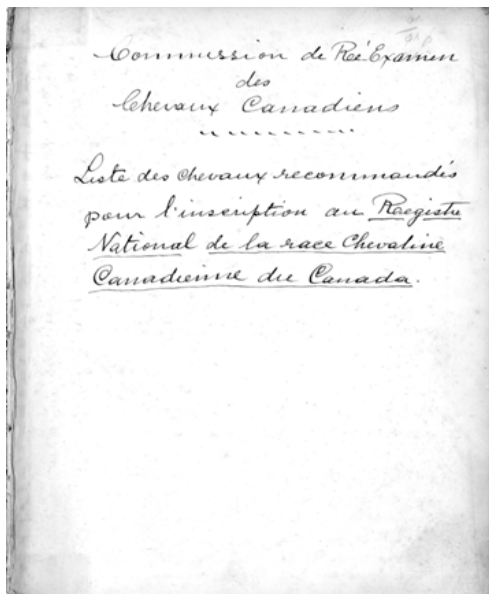 Commission de Ré Examen
des
Chevaux Canadiens
Liste des chevaux recommandés
pour l'inscription au Registre
National de la race Chevaline
Canadienne du Canada.